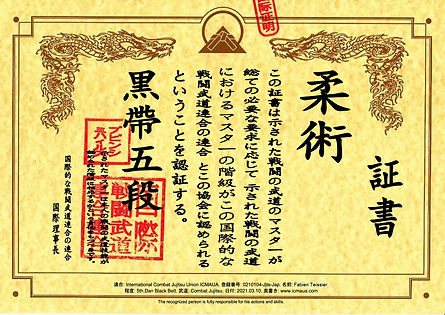 証書
柔術
この証書は示された戦闘の武道のマスターが
総ての必要な要求に応じて 示された戦闘の武道
におけるマスターの階級がこの国際的な
戦闘武道連合の連合 とこの協会に認められる
ということを認証する。
黒帯五段
国際的な戦闘武道連合の連合
国際理事長
国際
戦闘武道
連合: International Combat Jujitsu Union ICMAUA. 登録番号: 0210104-Jjts-Jap. 名前: Fabien Teissier.
程度: 5th Dan Black Belt. 武道: Combat Jujutsu. 日付: 2021.03.10. 奥書き: www.icmaua.com
The recognized person is fully responsible for his actions and skills.